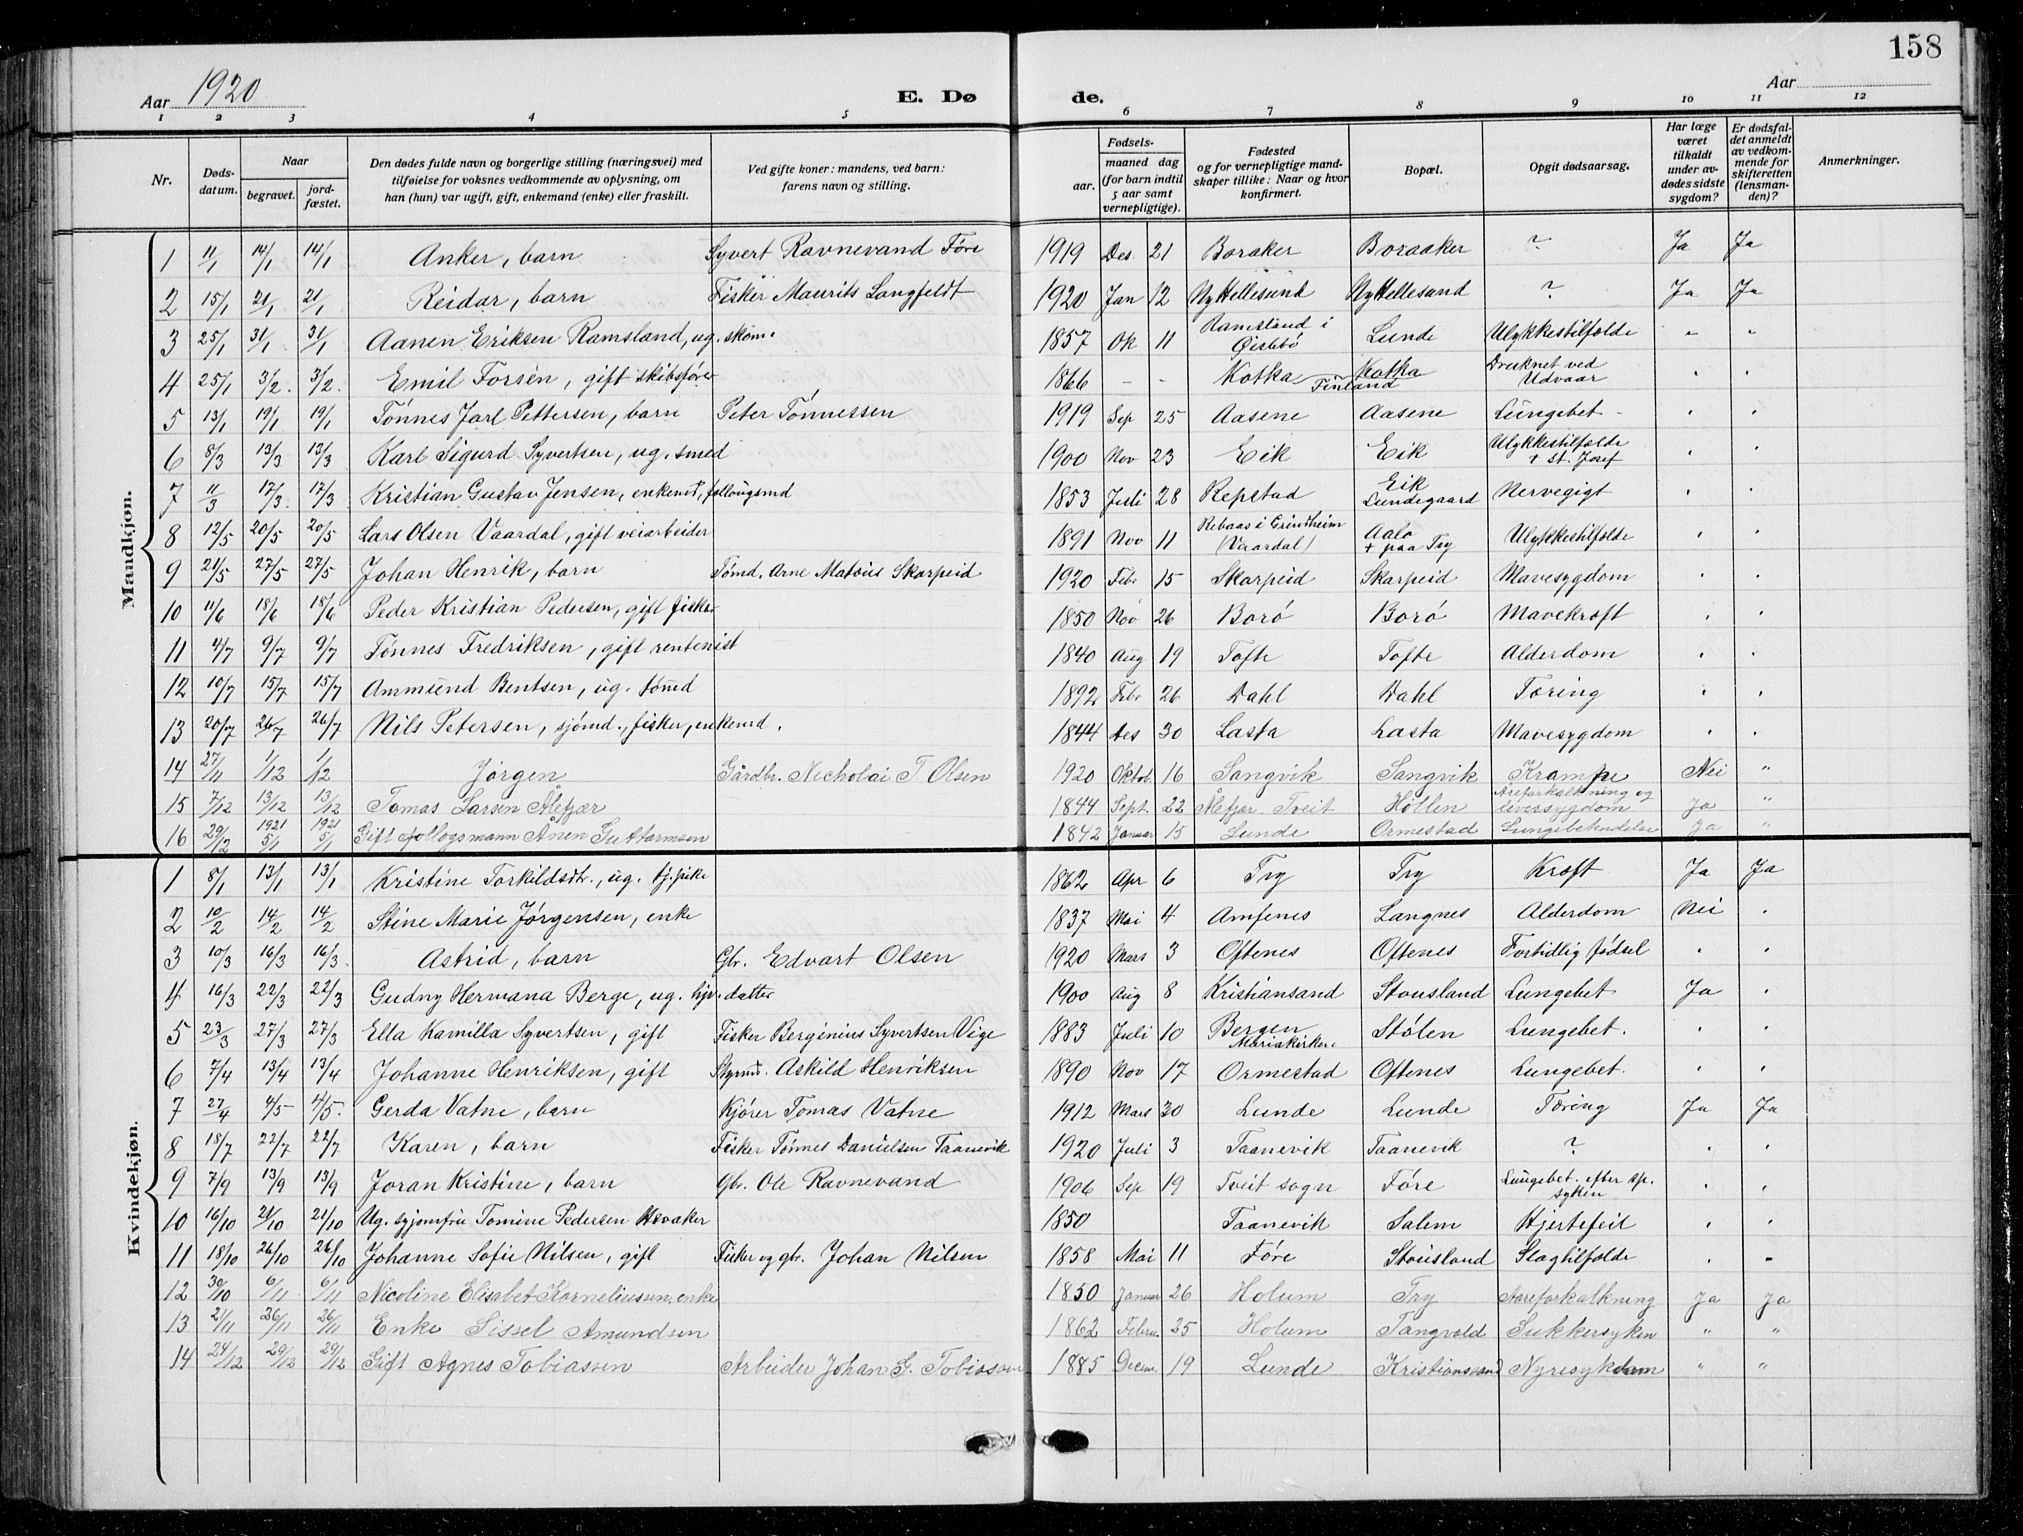 158
Aar 1920
E. Dø
de.
Aar
1 2 3 4 5 6 7 8 9 10 11 12
Nr.
Døds-datum.
Naar
begravet.
jord-fæstet.
Den dødes fulde navn og borgerlige stilling (næringsvei) med
tilføielse for voksnes vedkommende av oplysning, om
han (hun) var ugift, gift, enkemand (enke) eller fraskilt.
Ved gifte koner: mandens, ved barn:
farens navn og stilling.
Fødsels-
aar.
maaned dag
(for barn indtil
5 aar samt
vernepligtige).
Fødested
og for vernepligtige mand-
skaper tillike: Naar og hvor
konfirmert.
Bopæl.
Opgit dødsaarsag.
Har læge
været
tilkaldt
under av-
dødes sidste
sygdom?
Er dødsfal-
det anmeldt
av vedkom-
mende for
skifteretten
(lensman-
den)?
Anmerkninger.
Mandkjøn.
1 11/1 14/1 14/1 Anker, barn Syvert Ravnevand Føre 1919 Des 21 Boraker Boraaker ? Ja Ja
2 15/1 21/1 21/1 Reidar, barn Fisker Maurits Langfeldt 1920 Jan 12 Ny Hellesund Ny Hellesund ? Ja Ja
3 25/1 31/1 31/1 Aanen Eriksen Ramsland, ug. skom. 1857 Ok 11 Ramsland i Øislebø Lunde Ulykkestilfælde " "
4 25/1 3/2. 3/2. Emil Forsèn, gift skibsfører 1866 - - Kotka Finland Kotka Drucknet ved Udvaar " "
5 13/1 19/1 19/1 Tønnes Jarl Pettersen, barn Peter Tønnessen 1919 Sep 25 Aasene Aasene Lungebet - " "
6 8/3 13/3 13/3 Karl Sigurd Syvertsen, ug. smed 1900 Nov 23 Eik Eik Ulykkestilfælde + St. Josef " "
7 11/3 17/3 17/3 Kristian Gustav Jensen, enkemd, follougsmd 1853 Juli 28 Repstad Eik Lundegaard Nervegigt " "
8 12/5 20/5 20/5 Lars Olsen Vaardal, gift veiarbeider 1891 Nov 11 Rebaas i Grindheim (Vaardal) Aalo + paa Try Ulykkestilfælde " "
9 21/5 27/5 27/5 Johan Henrik, barn Tømd. Arne Matøus Skarpeid 1920 Febr 15 Skarpeid Skarpeid Mavesygdom " "
10 11/6 18/6 18/6 Peder Kristian Pedersen, gift fisker 1850 Nov 26 Borø Borø Mavekræft " "
11 4/7 9/7 9/7 Tønnes Fredriksen, gift rentenist 1840 Aug 19 Tofte Tofte Alderdom " "
12 10/7 15/7 15/7 Ammund Bentsen, ug. tømd 1892 Febr 26 Dahl Dahl Tæring " "
13 20/7 26/7 26/7 Nils Petersen, sjømd., fisker, enkemd. 1844 Des 30 Lasta Lasta Mavesygdom " "
14 27/11 1/12 1/12 Jørgen Gårdbr. Nicholai T. Olsen 1920 Oktob. 16 Sangvik Sangvik Krampe Nei "
15 7/12 13/12 13/12 Tomas Larsen Ålefjær 1844 Sept. 22 Ålefjær. Tveit Høllen Åreforkalkning og liversygdom Ja "
16 29/12 1921 5/1 1921 5/1 Gift follogsmann Ånen Guttormsen 1842 Januar 15 Lunde Ormestad Lungebetendelse Ja "
Kvindekjøn.
1 8/1 13/1 13/1 Kristine Torkildsdtr., ug. tj. pike 1862 Apr 6 Try Try Kræft Ja Ja
2 10/2 14/2 14/2 Stine Marie Jørgensen, enke 1837 Mai 4 Amfenes Langnes Alderdom Nei "
3 10/3 16/3 16/3. Astrid, barn Gbr. Edvart Olsen 1920 Mars 3 Oftenes Oftenes Fortidlig fødsel " "
4 16/3 22/3 22/3 Gudny Hermana Berge, ug. hjv. datter 1900 Aug 8 Kristiansand Stousland Lungebet Ja "
5 23/3 27/3 27/3 Ella Kamilla Syvertsen, gift Fisker Berginius Syvertsen Vige 1883 Juli 10 Bergen Mariakirken Stølen Lungebet. " "
6 7/4 13/4 13/4 Johanne Henriksen, gift Styrmd. Askild Henriksen 1890 Nov 17 Ormestad Oftenes Lungebet. " "
7 27/4 4/5 4/5. Gerda Vatne, barn Kjører Tomas Vatne 1912 Mars 30 Lunde Lunde Tæring Ja Ja
8 18/7 22/7 22/7 Karen, barn Fisker Tønnes Danielsen Taanevik 1920 Juli 3 Taanevik Taanevik ? " "
9 7/9 13/9 13/9 Joran Kristine, barn Gbr. Ole Ravnevand 1906 Sep 19 Tveit sogn Føre Lungebet. efter sp. syken " "
10 16/10 21/10 21/10 Ug. syjomfru Tomine Pedersen 1850 Taanevik Salem Hjertefeil " "
11 18/10 26/10 26/10 Johanne Sofie Nilsen, gift Fisker og gbr. Johan Nilsen 1858 Mai 11 Føre Stousland Slagtilfælde " -
12 30/10 6/11 6/11 Nicoline Elisabet Korneliussen, enke 1850 Januar 26 Holum Try Aareforkalkning Ja Ja
13 21/11 26/11 26/11 Enke Sissel Amundsen 1862 Febru. 25 Holum Tangvold Sukkersyken " "
14 24/12 29/12 29/12 Gift Agnes Tobiassen Arbeider Johan S. Tobiassen 1885 Decem. 19 Lunde Kristiansand Nyresykdom " "